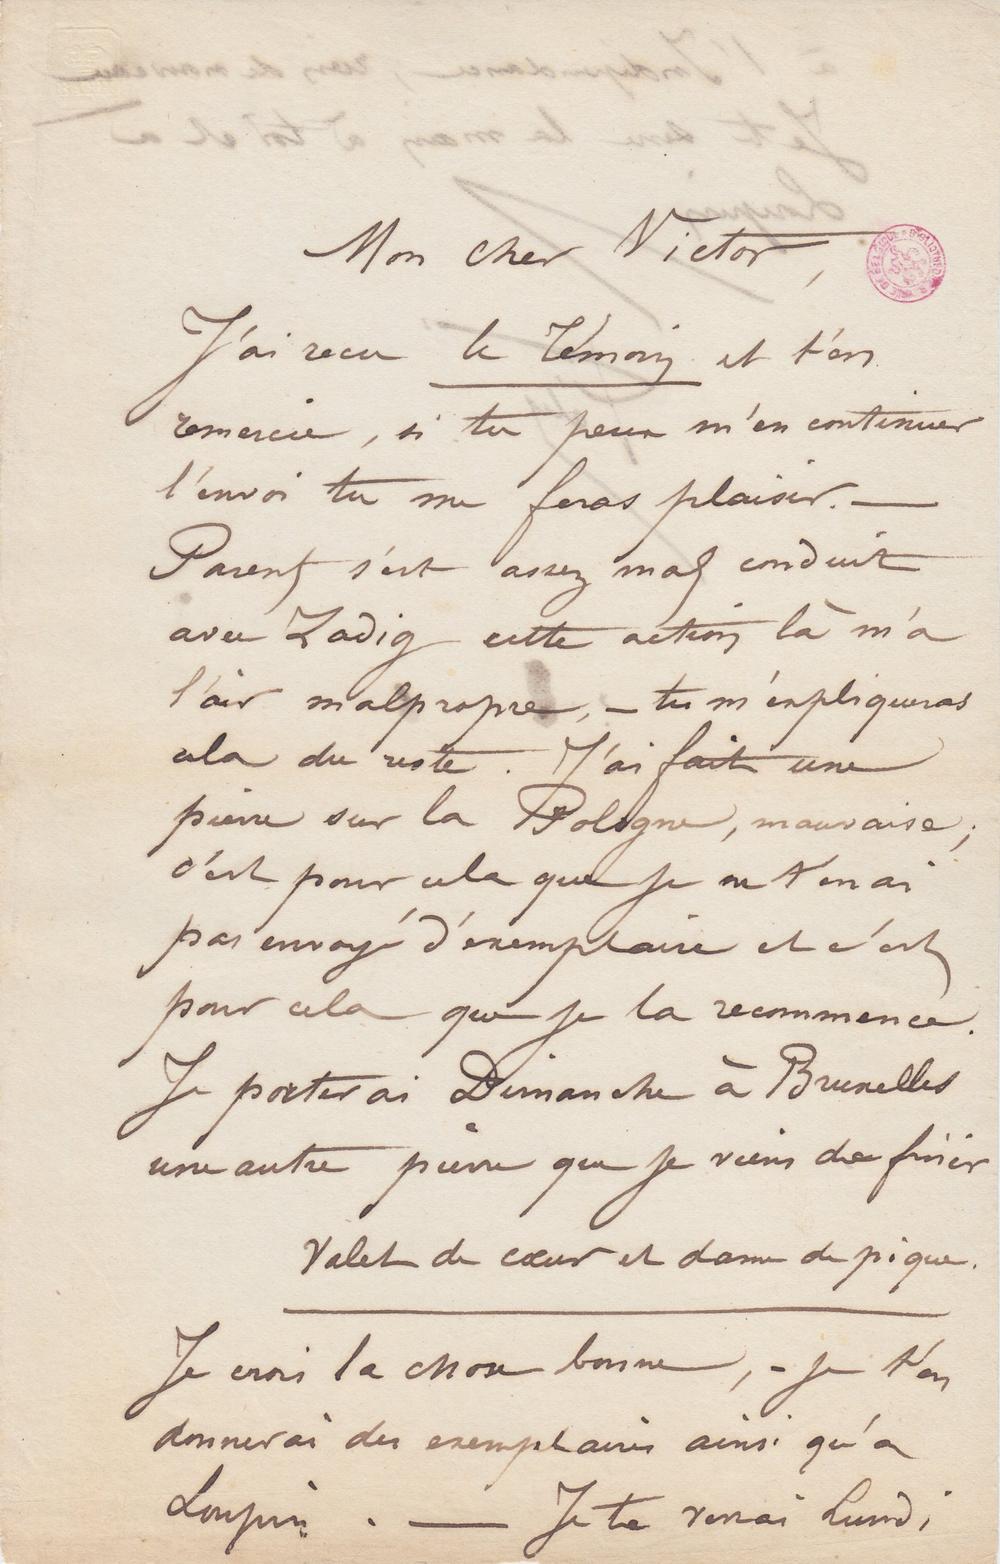 Mon cher Victor,
J'ai reçu le Témoin et t'en
remercie, si tu peux m'en continuer
l'envoi tu me feras plaisir. —
Parent s'est assez mal conduit
avec Zadig cette action là m'a
l'air malpropre, – tu m'expliqueras
cela du reste. J'ai fait une
pierre sur la Pologne, mauvaise;
c'est pour cela que je ne t'en ai
pas envoyé d'exemplaire et c'est
pour cela que je la recommence.
Je porterai Dimanche à Bruxelles
une autre pierre que je viens de finir
Valet de cœur et dame de pique.
Je crois la chose bonne, – je t'en
donnerai des exemplaires ainsi qu'a
Loupin. — Je te verrai Lundi